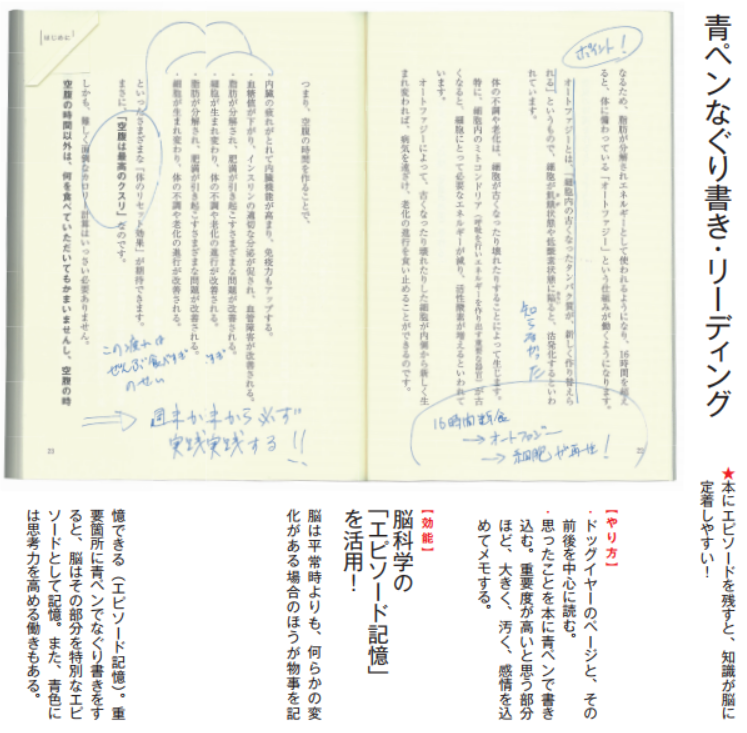 青ペンなぐり書き・リーディング
★本にエピソードを残すと、知識が脳に
定着しやすい！
ポイント！
なるため、脂肪が分解されエネルギーとして使われるようになり、16時間を超え
ると、体に備わっている「オートファジー」という仕組みが働くようになります。
オートファジーとは、「細胞内の古くなったタンパク質が、新しく作り替えら
れる」というもので、細胞が飢餓状態や低酸素状態に陥ると、活発化するといわ
れています。
知らなかった
体の不調や老化は、細胞が古くなったり壊れたりすることによって生じます。
特に、細胞内のミトコンドリア（呼吸を行いエネルギーを作り出す重要な器官）が古
くなると、細胞にとって必要なエネルギーが減り、活性酸素が増えるといわれて
います。
オートファジーによって、古くなったり壊れたりした細胞が内側から新しく生
まれ変われば、病気を遠ざけ、老化の進行を食い止めることができるのです。
16時間断食
→オートファジー
→細胞が再生！
22
はじめに
つまり、空腹の時間を作ることで、
・内臓の疲れがとれて内臓機能が高まり、免疫力もアップする。
・血糖値が下がり、インスリンの適切な分泌が促され、血管障害が改善される。
・脂肪が分解され、肥満が引き起こすさまざまな問題が改善される。
・細胞が生まれ変わり、体の不調や老化の進行が改善される。
・脂肪が分解され、肥満が引き起こすさまざまな問題が改善される。
・細胞が生まれ変わり、体の不調や老化の進行が改善される。
といったさまざまな「体のリセット効果」が期待できます。
まさに、「空腹は最高のクスリ」なのです。
しかも、難しく面倒なカロリー計算はいっさい必要ありません。
空腹の時間以外は、何を食べていただいてもかまいませんし、空腹の時
この疲れは
ぜんぶ食べすぎ
のせい
⇒週末から必ず
実践実践する!!
23
【やり方】
・ドッグイヤーのページと、その
前後を中心に読む。
・思ったことを本に青ペンで書き
込む。重要度が高いと思う部分
ほど、大きく、汚く、感情を込
めてメモする。
【効能】
脳科学の
「エピソード記憶」
を活用！
脳は平常時よりも、何らかの変
化がある場合のほうが物事を記
憶できる（エピソード記憶）。重
要箇所に青ペンでなぐり書きをす
ると、脳はその部分を特別なエピ
ソードとして記憶。また、青色に
は思考力を高める働きもある。